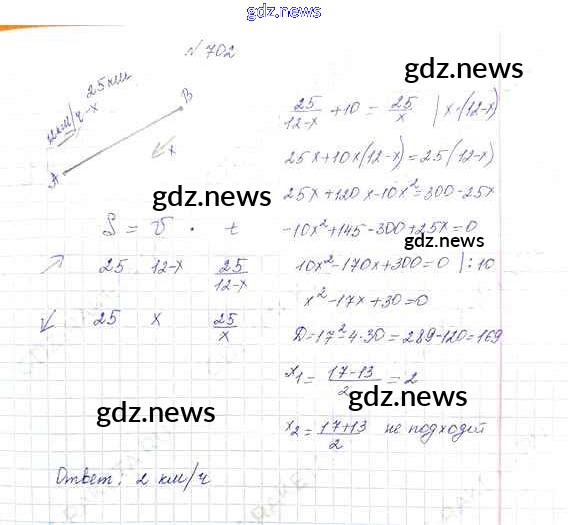 gdz.news
№ 702
25 км
12 км/ч - x
B
A
x
gdz.news
S = v · t
25 12-x 25/(12-x)
25 x 25/x
gdz.news
gdz.news
Ответ: 2 км/ч
gdz.news
25/(12-x) + 10 = 25/x | x·(12-x)
25x+10x(12-x)=25(12-x)
25x+120x-10x²=300-25x
-10x²+145-300+25x=0
gdz.news
10x²-170x+300=0 |:10
x²-17x+30=0
D=17²-4·30=289-120=169
x₁= (17-13)/2 = 2
gdz.news
x₂= (17+13)/2 не подходит